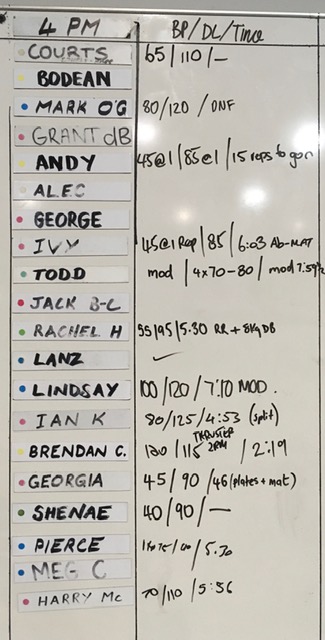 4 PM BP/DL/Time
COURTS 65/110/-
BODEAN
MARK O'G 80/120/DNF
GRANT dB
ANDY 45@1/85@1/15 reps to gon
ALEC
GEORGE
IVY 45@1 Rep/85/6:03 Ab-MAT
TODD mod/4x70-80/mod 7:59
JACK B-L
RACHEL H 55/95/5:30 RR + 8kg DB
LANZ ✓
LINDSAY 100/120/7:10 MOD.
IAN K 80/125/4:53 (split)
BRENDAN C. 120/115 THRUSTER 2RM/2:19
GEORGIA 45/90/46 (plates + mat)
SHENAE 40/90/—
PIERCE /5:30
MEG C
HARRY Mc 70/110/5:56